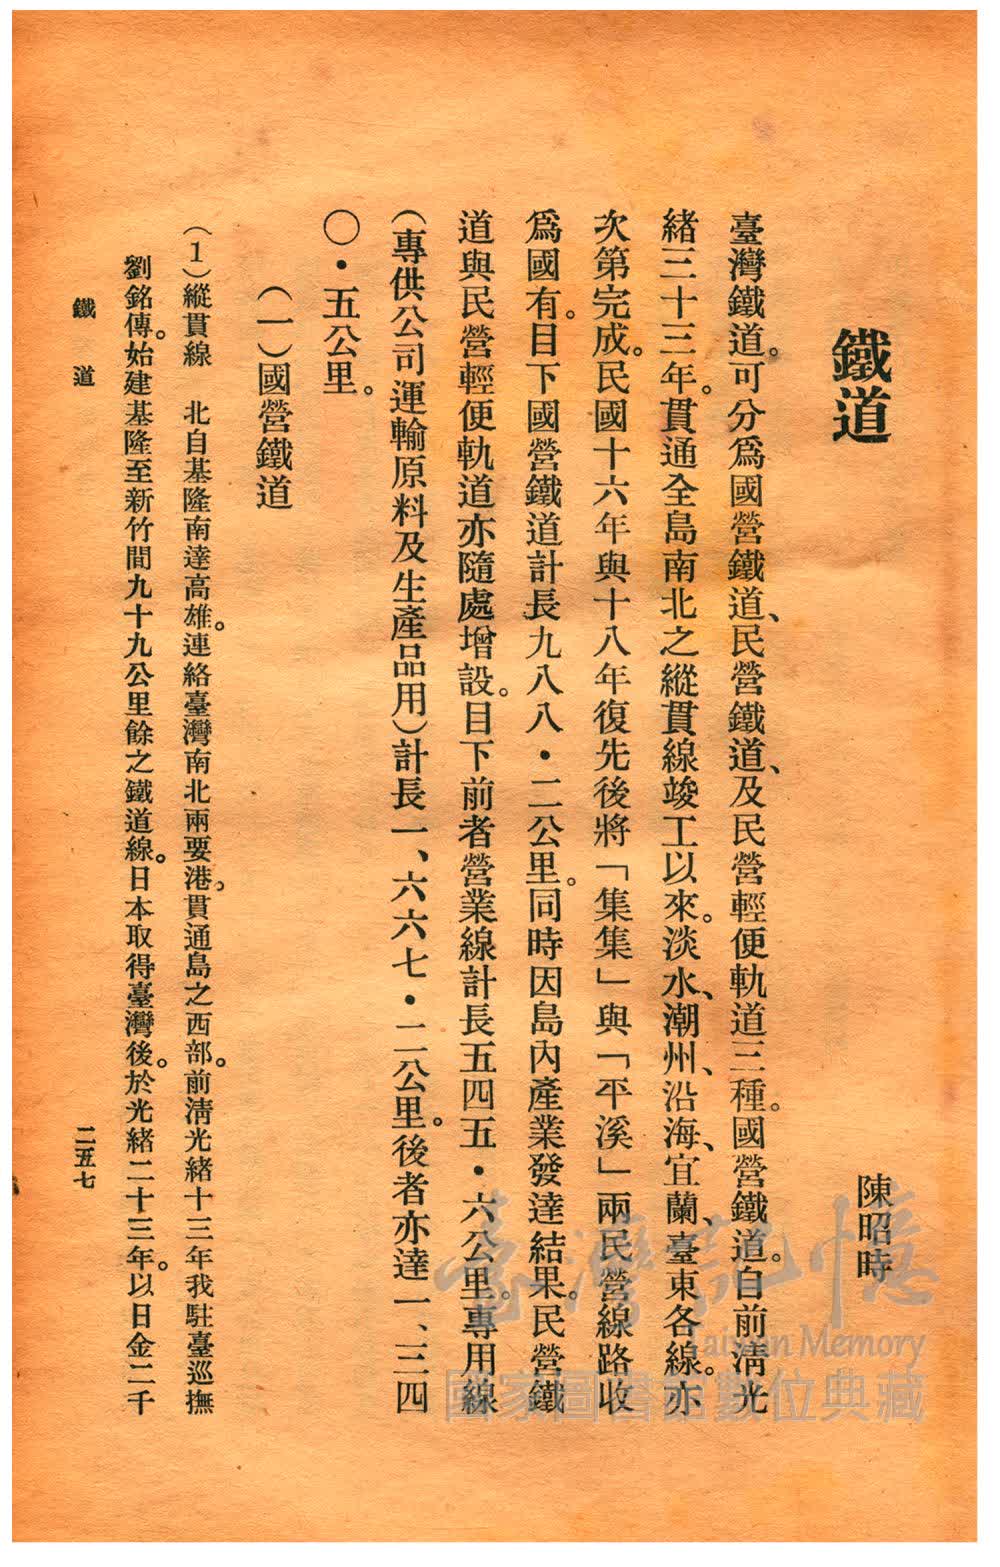 鐵道
陳昭時
臺灣鐵道。可分爲國營鐵道、民營鐵道、及民營輕便軌道三種。國營鐵道。自前淸光
緖三十三年。貫通全島南北之縱貫線竣工以來。淡水、潮州、沿海、宜蘭、臺東各線。亦
次第完成。民國十六年與十八年復先後將「集集」與「平溪」兩民營線路收
爲國有。目下國營鐵道計長九八八・二公里。同時因島內產業發達結果。民營鐵
道與民營輕便軌道亦隨處增設。目下前者營業線計長五四五・六公里。專用線
（專供公司運輸原料及生產品用）計長一、六六七・二公里。後者亦達一、三四
〇・五公里。
（一）國營鐵道
（１）縱貫線　北自基隆南達高雄。連絡臺灣南北兩要港。貫通島之西部。前淸光緖十三年我駐臺巡撫
劉銘傳。始建基隆至新竹間九十九公里餘之鐵道線。日本取得臺灣後。於光緖二十三年。以日金二千
鐵道
二五七
臺灣記憶
Taiwan Memory
國家圖書館數位典藏